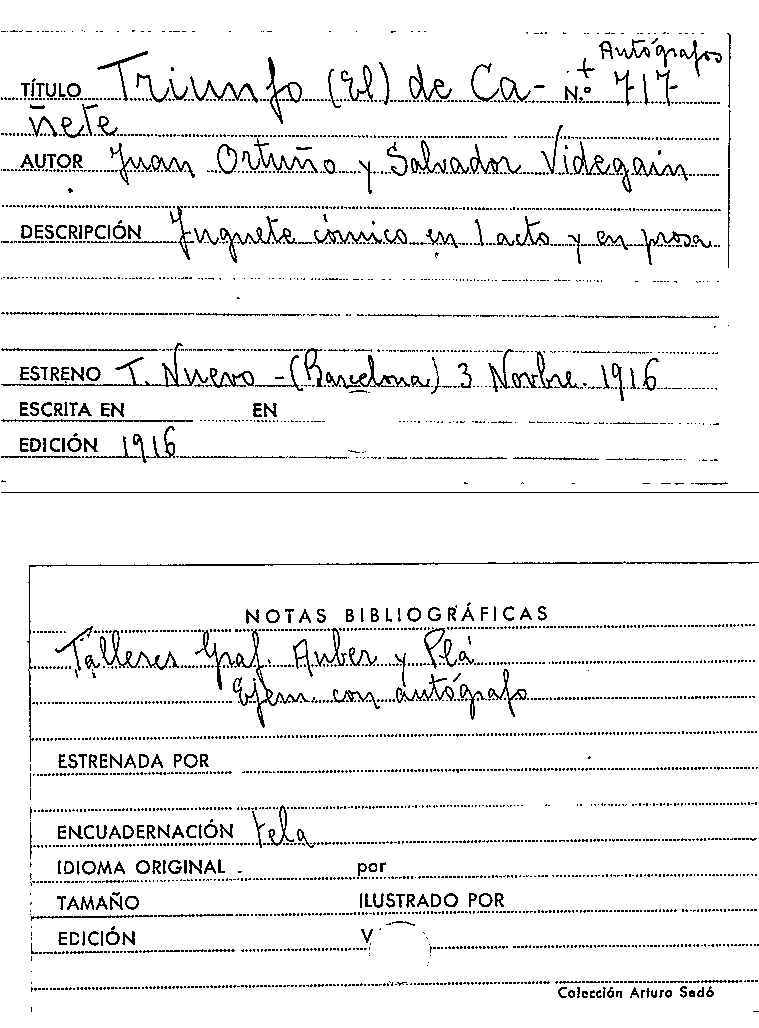 + Autógrafos
TÍTULO Triunfo (El) de Ca- N.º 717
ñete
AUTOR Juan Ortuño y Salvador Videgain
DESCRIPCIÓN Juguete cómico en 1 acto y en prosa
ESTRENO T. Nuevo - (Barcelona) 3 Novbre. 1916
ESCRITA EN EN
EDICIÓN 1916
NOTAS BIBLIOGRÁFICAS
Talleres Graf. Auber y Plá
Ejem. con autógrafo
ESTRENADA POR
ENCUADERNACIÓN tela
IDIOMA ORIGINAL por
TAMAÑO ILUSTRADO POR
EDICIÓN V
Colección Arturo Sedó